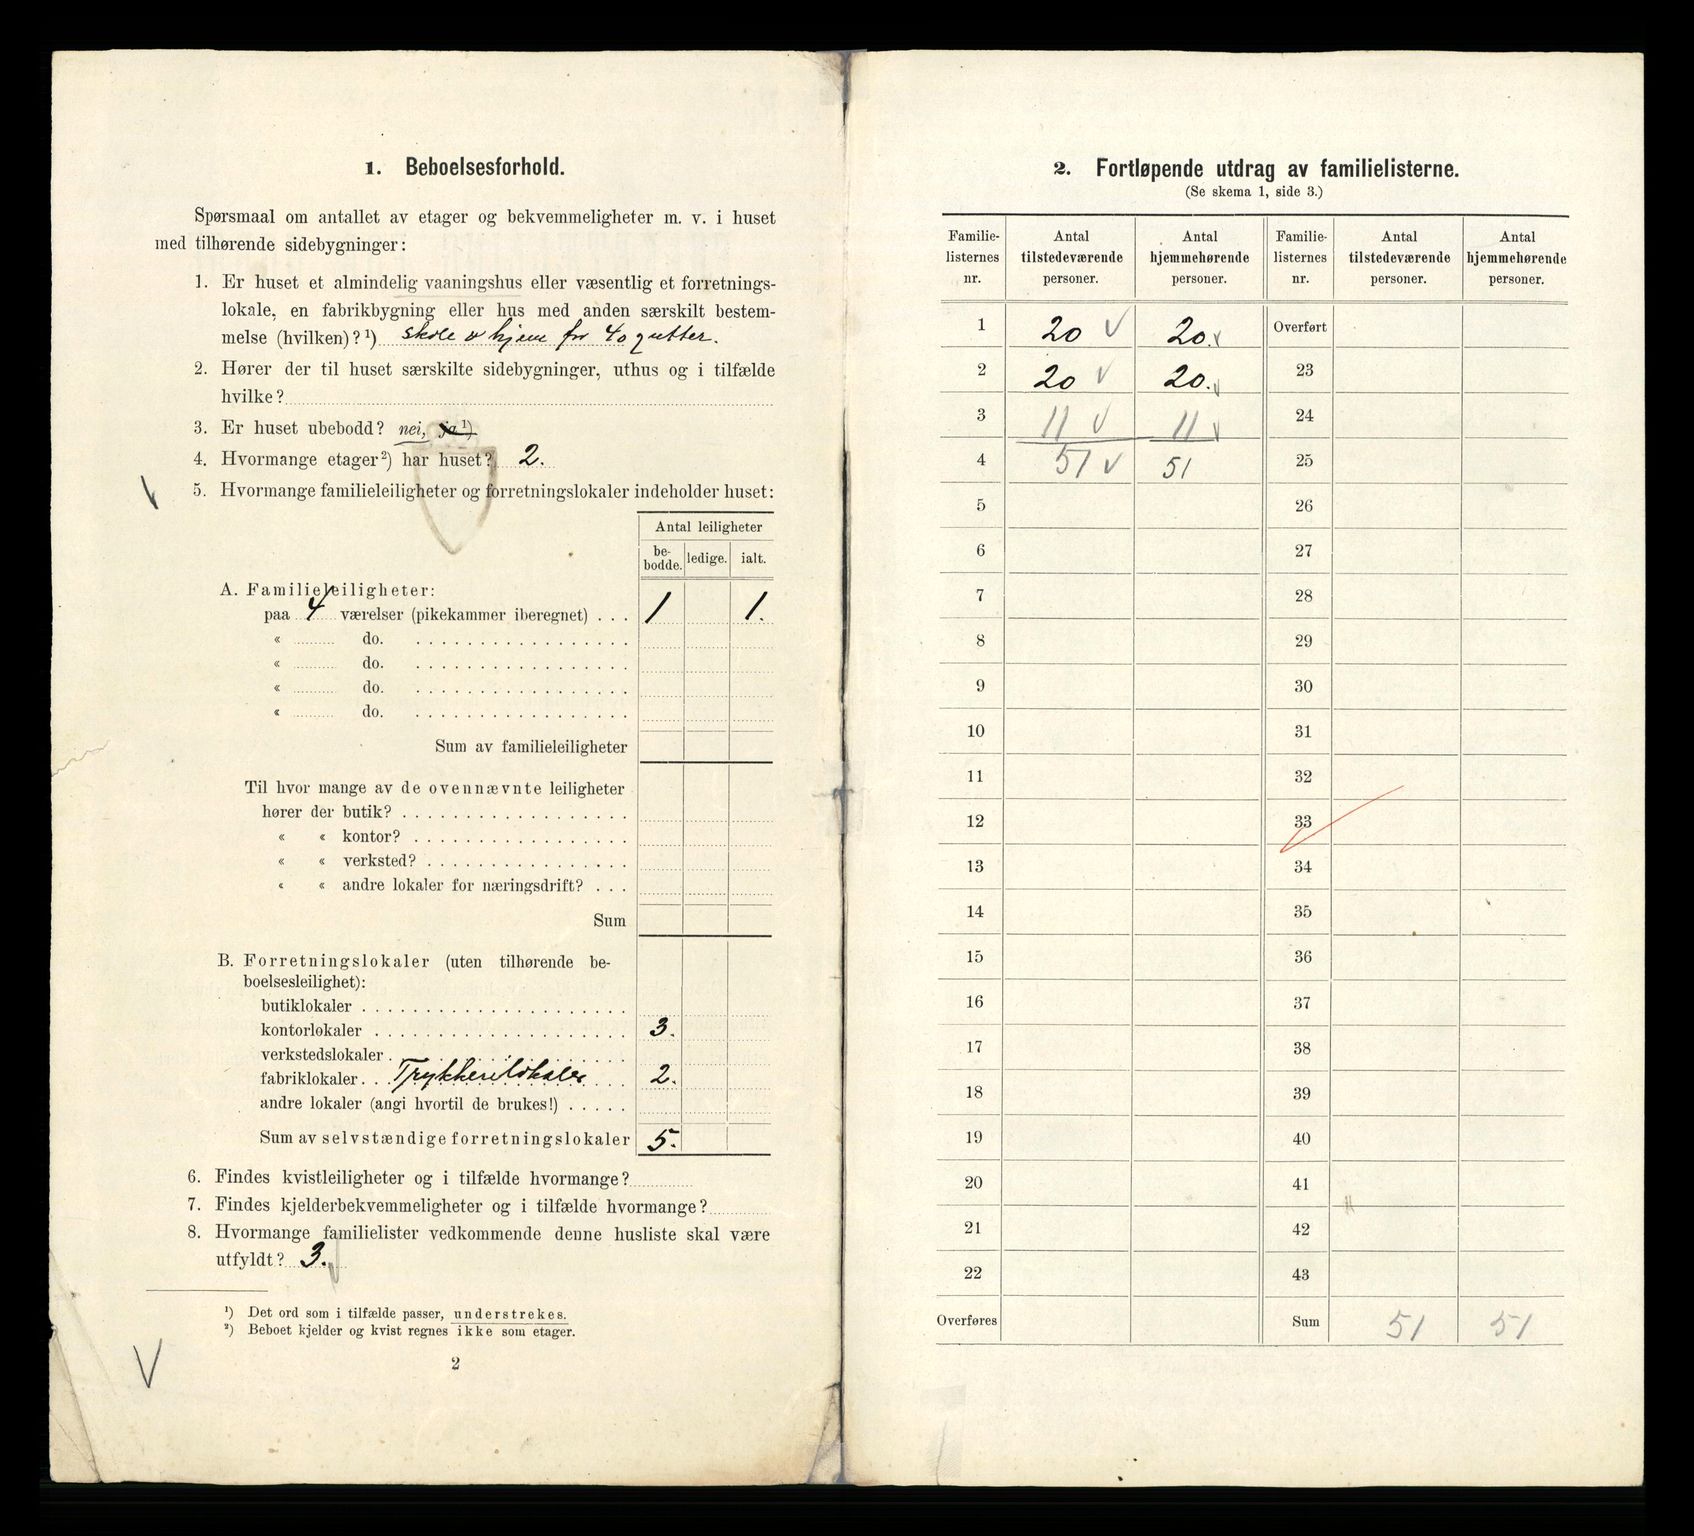 1. Beboelsesforhold.
Spørsmaal om antallet av etager og bekvemmeligheter m. v. i huset
med tilhørende sidebygninger:
1. Er huset et almindelig vaaningshus eller væsentlig et forretnings-
lokale, en fabrikbygning eller hus med anden særskilt bestem-
melse (hvilken)?¹) skole & hjem for 40 gutter.
2. Hører der til huset særskilte sidebygninger, uthus og i tilfælde
hvilke?
3. Er huset ubebodd? nei, ja¹)
4. Hvormange etager²) har huset? 2.
5. Hvormange familieleiligheter og forretningslokaler indeholder huset:
Antal leiligheter
be-
bodde. ledige. ialt.
A. Familieleiligheter:
paa 4 værelser (pikekammer iberegnet) . . . 1 1.
« do.
« do.
« do.
« do.
Sum av familieleiligheter
Til hvor mange av de ovennævnte leiligheter
hører der butik?
« « kontor?
« « verksted?
« « andre lokaler for næringsdrift?
Sum
B. Forretningslokaler (uten tilhørende be-
boelsesleilighet):
butiklokaler
kontorlokaler 3.
verkstedslokaler
fabriklokaler Trykkerilokaler 2.
andre lokaler (angi hvortil de brukes!)
Sum av selvstændige forretningslokaler 5.
6. Findes kvistleiligheter og i tilfælde hvormange?
7. Findes kjelderbekvemmeligheter og i tilfælde hvormange?
8. Hvormange familielister vedkommende denne husliste skal være
utfyldt? 3.
¹) Det ord som i tilfælde passer, understrekes.
²) Beboet kjelder og kvist regnes ikke som etager.
2
2. Fortløpende utdrag av familielisterne.
(Se skema 1, side 3.)
Familie- Antal Antal Familie- Antal Antal
listernes tilstedeværende hjemmehørende listernes tilstedeværende hjemmehørende
nr. personer. personer. nr. personer. personer.
1 20 20. Overført
2 20 20. 23
3 11 11 24
4 51 51 25
5 26
6 27
7 28
8 29
9 30
10 31
11 32
12 33
13 34
14 35
15 36
16 37
17 38
18 39
19 40
20 41
21 42
22 43
Overføres Sum 51 51